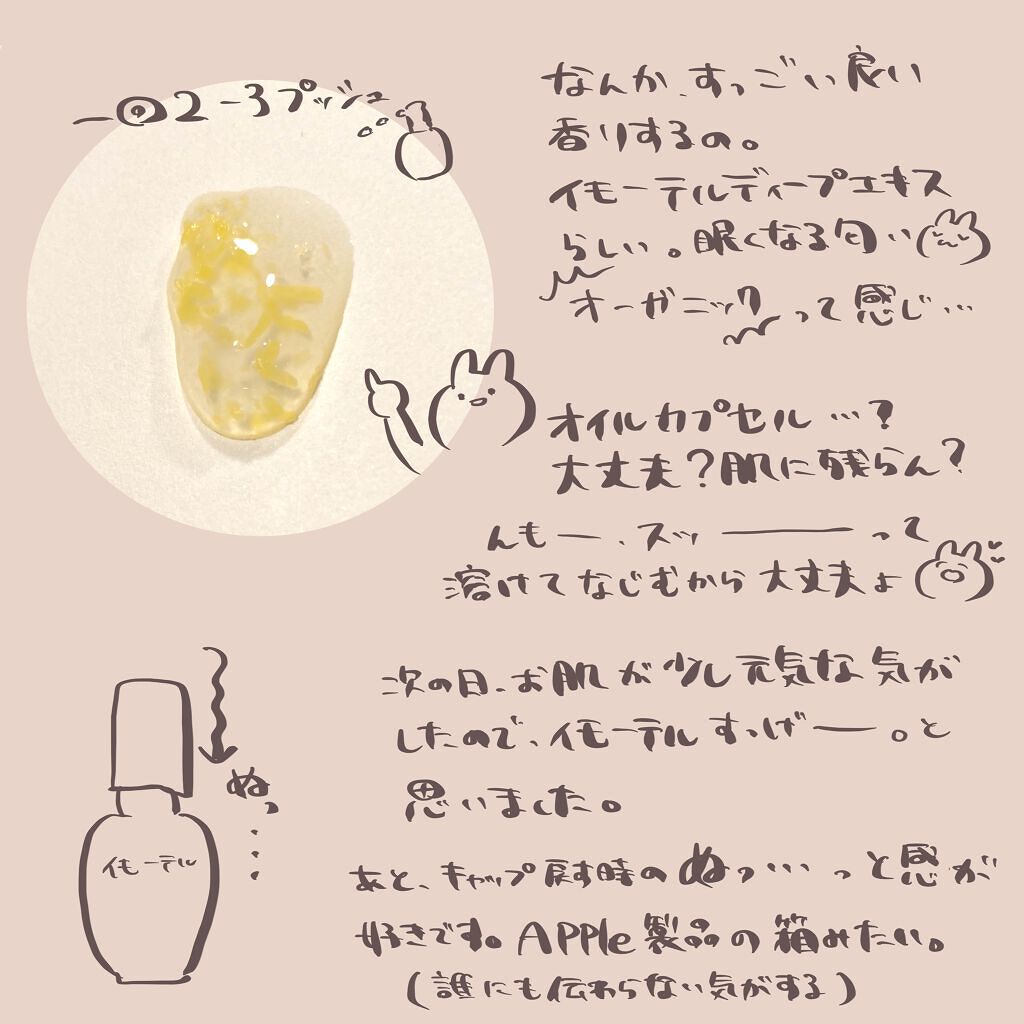 一回2-3プッシュ
なんか、すっごい良い
香りするの。
イモーテルディープエキス
らしい。眠くなる匂い
オーガニックって感じ…
オイルカプセル…?
大丈夫?肌に残らん?
んもー、スッ――――って
溶けてなじむから大丈夫よ
次の日、お肌が少し元気な気が
したので、イモーテルすっげー。と
思いました。
ぬっ…
イモーテル
あと、キャップ戻す時のぬっ……っと感が
好きです。APPle製品の箱みたい。
(誰にも伝わらない気がする)